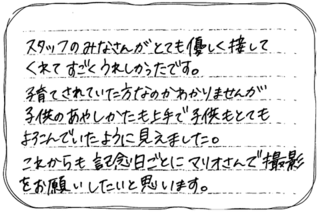 スタッフのみなさんがとても優しく接して
くれてすごくうれしかったです。
子育てされていた方なのかわかりませんが
子供のあやしかたも上手で子供もとても
よろこんでいたように見えました。
これからも記念日ごとにマリオさんで撮影
をお願いしたいと思います。